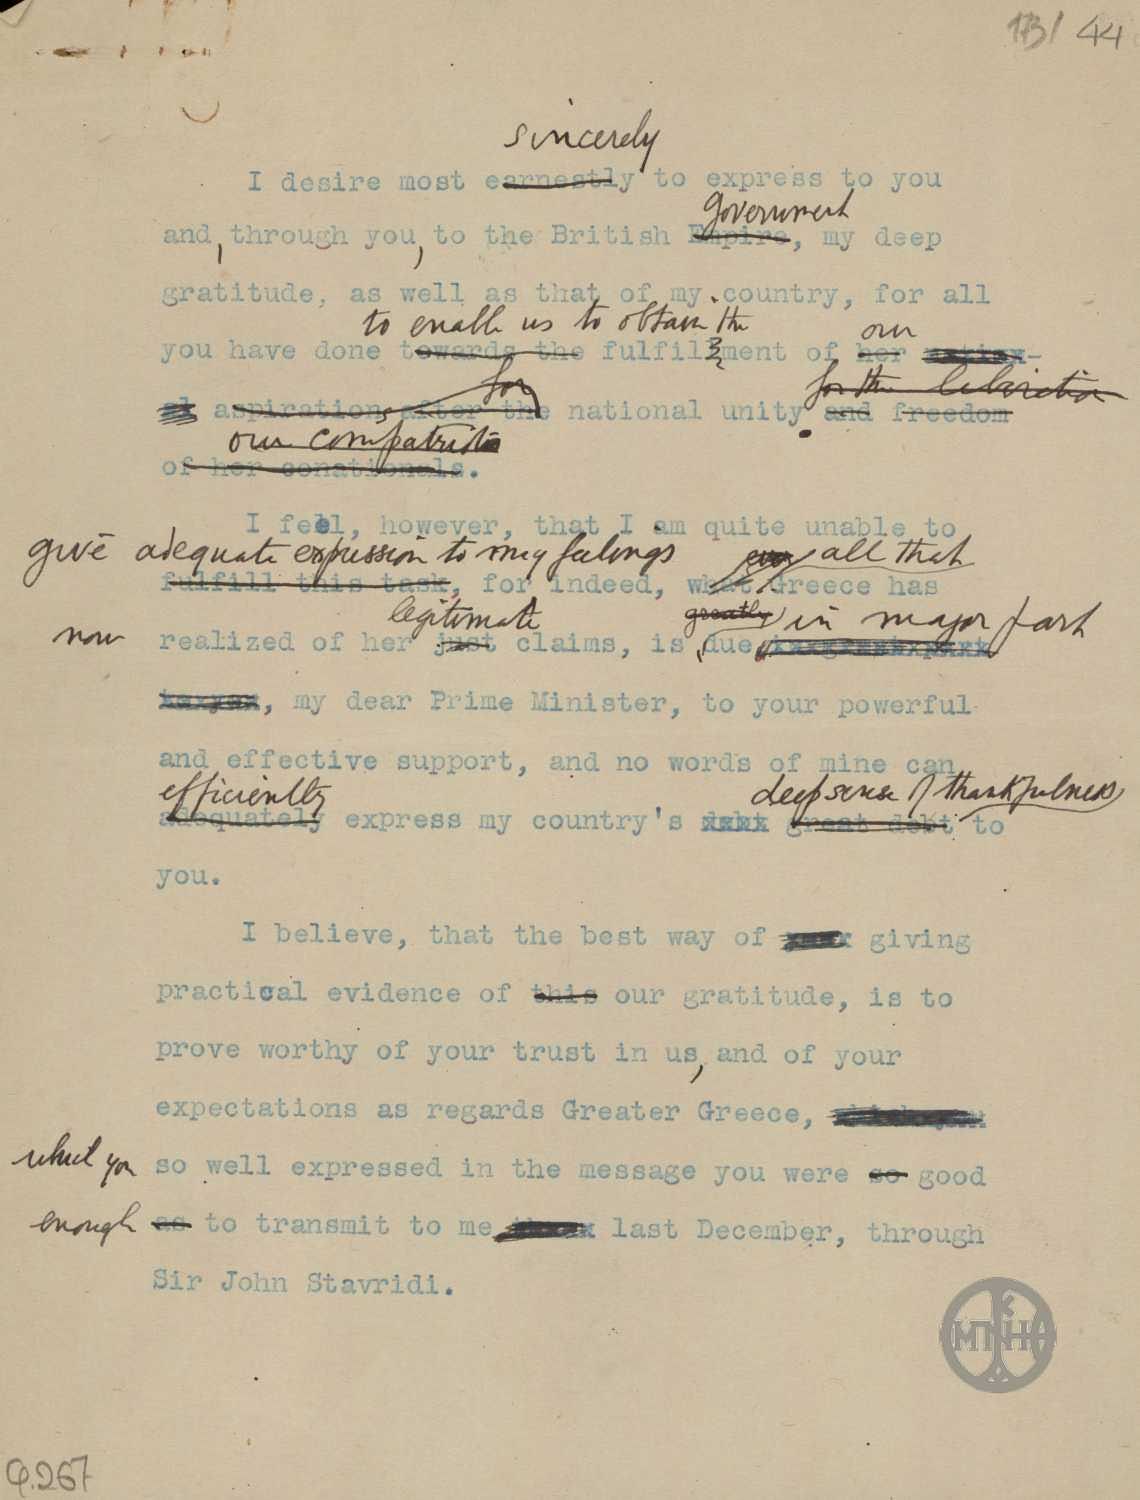 173/ 44
sincerely
I desire most earnestly to express to you
government
and, through you, to the British Empire, my deep
gratitude, as well as that of my country, for all
to enable us to obtain the our
you have done towards the fulfillment of her
for for the liberation
aspirations after the national unity and freedom
our compatriots
of her conationals.
I feel, however, that I am quite unable to
give adequate expression to my feelings even all that
fulfill this task, for indeed, what Greece has
legitimate greatly in major part
now realized of her just claims, is due
, my dear Prime Minister, to your powerful
and effective support, and no words of mine can
efficiently deep sense of thankfulness
adequately express my country's debt great debt to
you.
I believe, that the best way of giving
practical evidence of this our gratitude, is to
prove worthy of your trust in us, and of your
expectations as regards Greater Greece,
which you so well expressed in the message you were so good
enough as to transmit to me last December, through
Sir John Stavridi.
ΜΠΗΑ
Φ.267